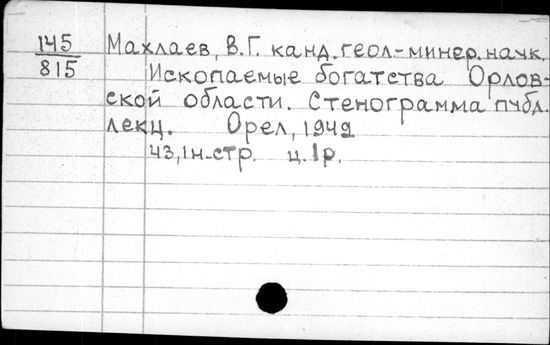 145
815
Махлаев, В.Г. канд. геол.-минер. наук.
Ископаемые богатства Орлов-
ской области. Стенограмма публ.
лекц. Орел, 1949
43, 1н. стр. ц. 1р.